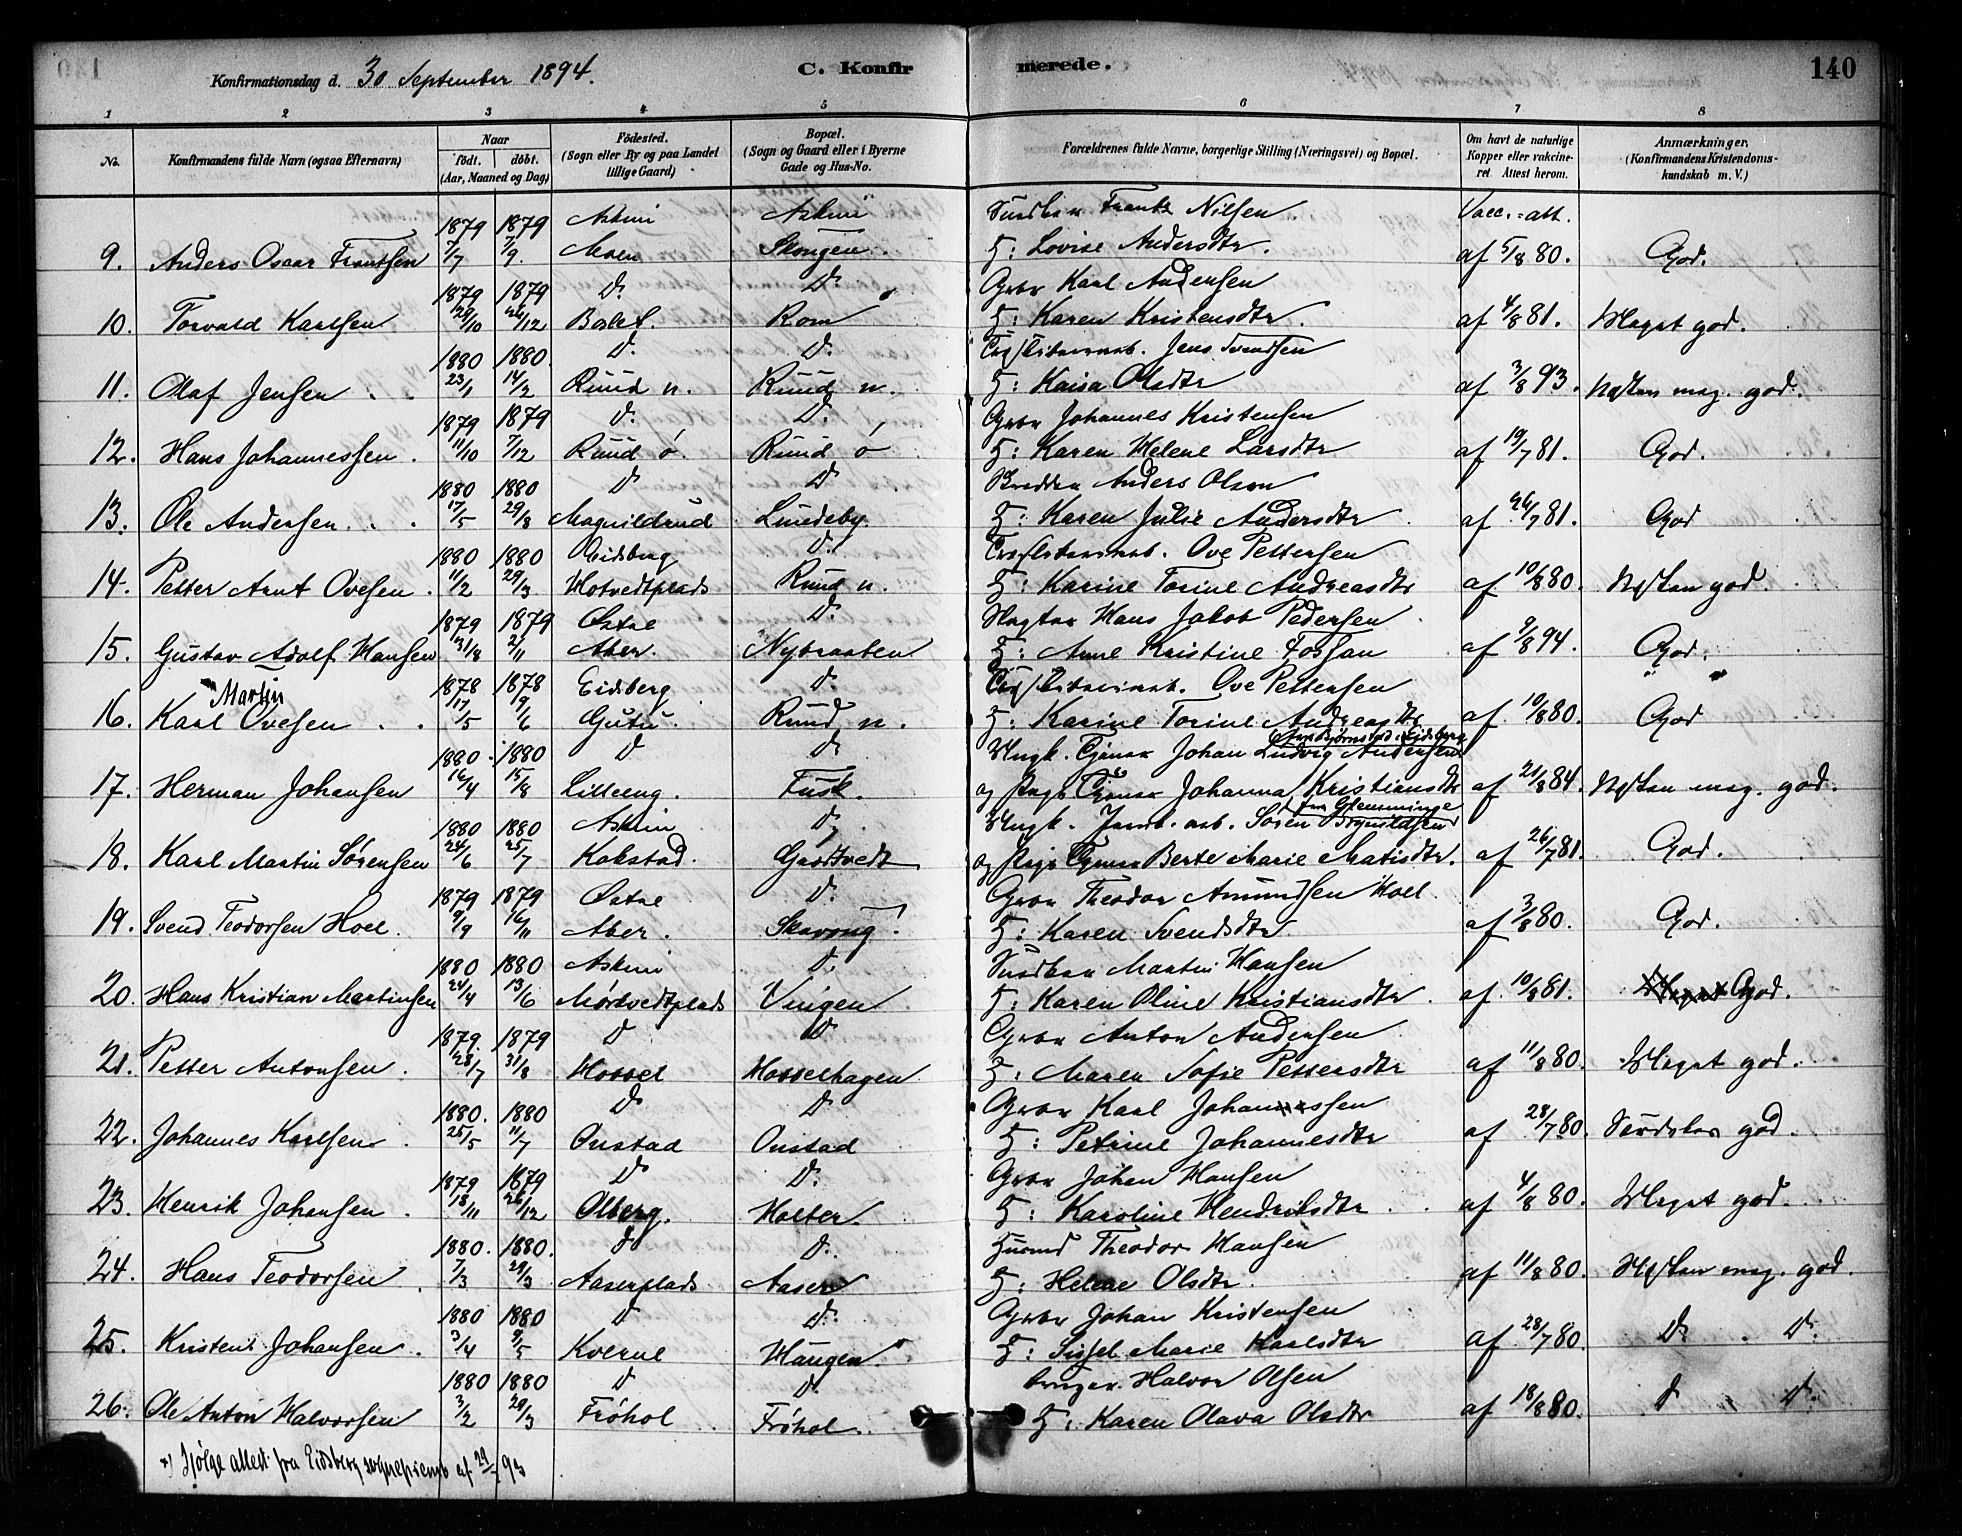 140
Konfirmationsdag d. 30 September 1894.
C. Konfirmerede.
1 2 3 4 5 6 7 8
No. | Konfirmandens fulde Navn (ogsaa Efternavn) | Naar födt. döbt. (Aar, Maaned og Dag) | Födested. (Sogn eller By og paa Landet tillige Gaard) | Bopæl. (Sogn og Gaard eller i Byerne Gade og Hus-No. | Forældrenes fulde Navne, borgerlige Stilling (Næringsvei) og Bopæl. | Om havt de naturlige Kopper eller vakcineret. Attest herom. | Anmærkninger. (Konfirmandens Kristendomskundskab m. V.)
1879 1879 Askim Askim Frantz Nilsen Vacc.=att.
9. Anders Oscar Frantsen 7/7 7/9. Moen Skongen. H: Lovise Andersdtr. af 5/8 80. God.
1879 1879 Do Do Gbr Karl Andersen
10. Torvald Karlsen 29/10 26/12 Rom H: Karen Kristensdtr. af 4/8 81. Meget god.
1880 1880. Do Do Jens Svendsen
11. Olaf Jensen 23/1 14/3 Ruud n. Ruud n. H: Kaisa Olsdtr af 3/8 93. Næsten meg. god.
1879 1879 Do Do Gbr Johannes Kristensen
12. Hans Johannessen. 11/10 7/12 Ruud ö. Ruud ö H: Karen Helene Larsdtr af 19/7 81. God.
1880 1880 Do Do Anders Olsen
13. Ole Andersen. 17/5 29/8 Magnildrud Lundeby. H: Karen Julie Andersdtr af 26/7 81. God
1880 1880 Eidsberg Do Ove Pettersen
14. Petter Arnt Ovesen. 11/2 29/3 Hotvedtplads Ruud n. H: Karine Torine Andreasdtr af 10/8 80. Næsten god.
1879 1879 Do Hans Jakob Pedersen
15. Gustav Adolf Hansen 31/8 2/11 Aber. Nybraaten H: Anne Kristine Fossan af 9/8 94. God.
Martin 1878 1878 Eidsberg Do Ove Pettersen
16. Karl Ovesen 17/5 9/6 Gutu. Ruud n. H: Karine Torine Andreasdtr af 10/8 80. God
1880 1880 Do Do Ungk. Tjener Johan Ludvig Andersen
17. Herman Johansen 16/4 15/8 Lilleeng. Fusk. og Pige Tjener Johanna Kristiansdtr af 21/8 84. Næsten meg. god.
fra Glemminge
1880 1880 Askim Do Ungk. Jernb. arb. Sören
18. Karl Martin Sörensen 24/6 25/7 Kokstad. Grødtvedt og Pige Tjener Berte Marie Matisdtr. af 26/7 81. God.
1879 1879 Do Gbr Theodor Amundsen Hoel
19. Svend Teodorsen Hoel. 9/9 16/11 Aber. H: Karen Svendsdtr. af 3/8 80. God.
1880 1880 Askim Do Martin Hansen
20. Hans Kristian Martinsen 24/4 13/6 Mørkvedtplads Vingen H: Karen Oline Kristiansdtr. af 10/8 81. God.
1879. 1879 Do Do Gbr Anton Andersen
21. Petter Antonsen. 28/7 31/8 Hossel Hosselhagen H: Maren Sofie Pettersdtr af 11/8 80. Meget god.
1880. 1880 Do Do Gbr Karl Johanssen
22. Johannes Karlsen. 25/5 11/7 Onstad Onstad H: Petrine Johannesdtr af 28/7 80. Særdeles god.
1879 1879 Do Do Gbr Johan Hansen
23. Henrik Johansen. 18/11 26/12 Olberg. Holter. H: Karoline Hendriksdtr. af 4/8 80. Meget god.
1880. 1880. Do Do Husmd Theodor Hansen
24. Hans Teodorsen. 7/3 29/3 Aaserplads. Aaser H: Helene Olsdtr. af 11/8 80. Næsten meg. god.
1880 1880 Do Do Gbr Johan Kristensen
25. Kristen Johansen. 3/4 9/5 Kverne Haugen. H: Sissel Marie Karlsdtr af 28/7 80. Do. Do.
1880 1880 Do Do Halvor Olsen
26. Ole Anton Halvorsen 3/2 29/3 Fröhol Fröhol. H: Karen Olava Olsdtr af 18/8 80. Do Do.
x) Ifølge attest fra Eidsberg